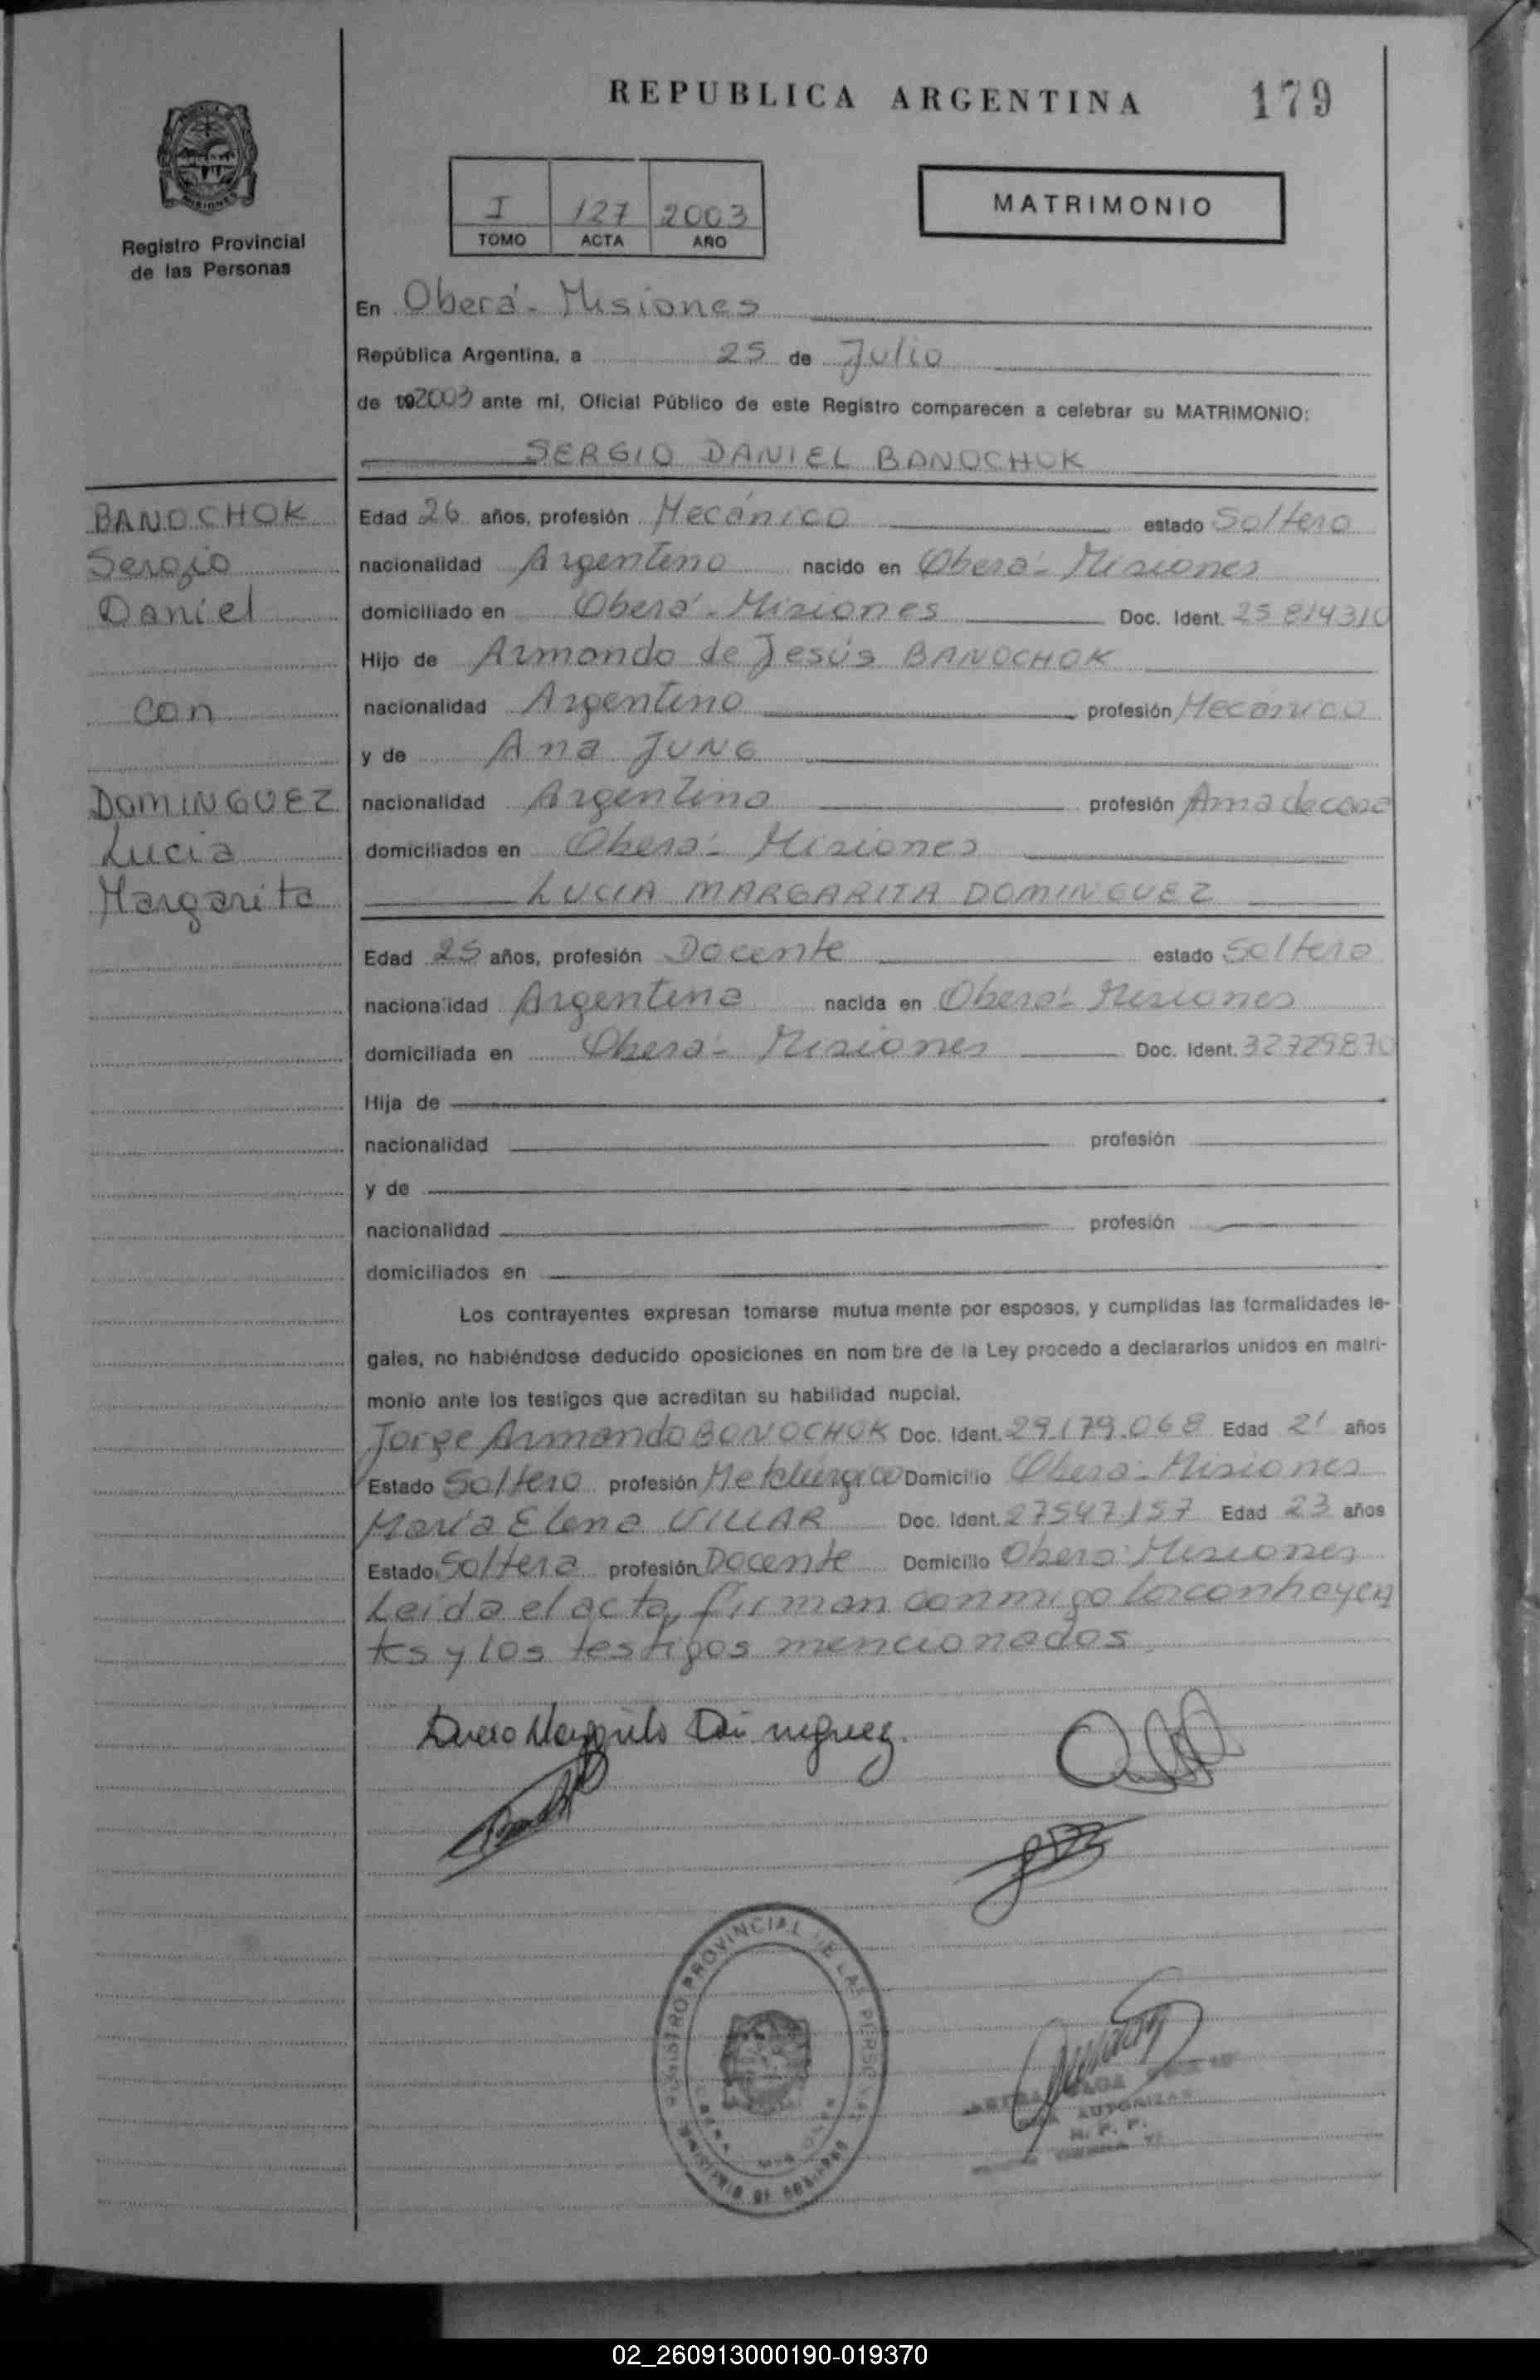 REPUBLICA ARGENTINA 179
Registro Provincial
de las Personas
I 127 2003
TOMO ACTA AÑO
MATRIMONIO
En Oberá - Misiones
República Argentina, a 25 de Julio
de 192003 ante mi, Oficial Público de este Registro comparecen a celebrar su MATRIMONIO:
SERGIO DANIEL BANOCHOK
BANOCHOK
Sergio
Daniel
con
DOMINGUEZ
Lucia
Margarita
Edad 26 años, profesión Mecánico estado Soltero
nacionalidad Argentino nacido en Oberá - Misiones
domiciliado en Oberá - Misiones Doc. Ident. 25 814310
Hijo de Armando de Jesús BANOCHOK
nacionalidad Argentino profesión Mecánico
y de Ana JUNG
nacionalidad Argentina profesión Ama de casa
domiciliados en Oberá - Misiones
LUCIA MARGARITA DOMINGUEZ
Edad 25 años, profesión Docente estado Soltera
nacionalidad Argentina nacida en Oberá - Misiones
domiciliada en Oberá - Misiones Doc. Ident. 32729870
Hija de
nacionalidad profesión
y de
nacionalidad profesión
domiciliados en
Los contrayentes expresan tomarse mutua mente por esposos, y cumplidas las formalidades le-
gales, no habiéndose deducido oposiciones en nom bre de la Ley procedo a declararlos unidos en matri-
monio ante los testigos que acreditan su habilidad nupcial.
Jorge Armando BONOCHOK Doc. Ident. 29.179.068 Edad 21 años
Estado Soltero profesión Metalúrgico Domicilio Oberá - Misiones
María Elena VILLAR Doc. Ident. 27547157 Edad 23 años
Estado Soltera profesión Docente Domicilio Oberá Misiones
Leida el acta, firman conmigo los contrayen
tes y los testigos mencionados
REGISTRO PROVINCIAL DE LAS PERSONAS
MINISTERIO DE GOBIERNO
02_260913000190-019370